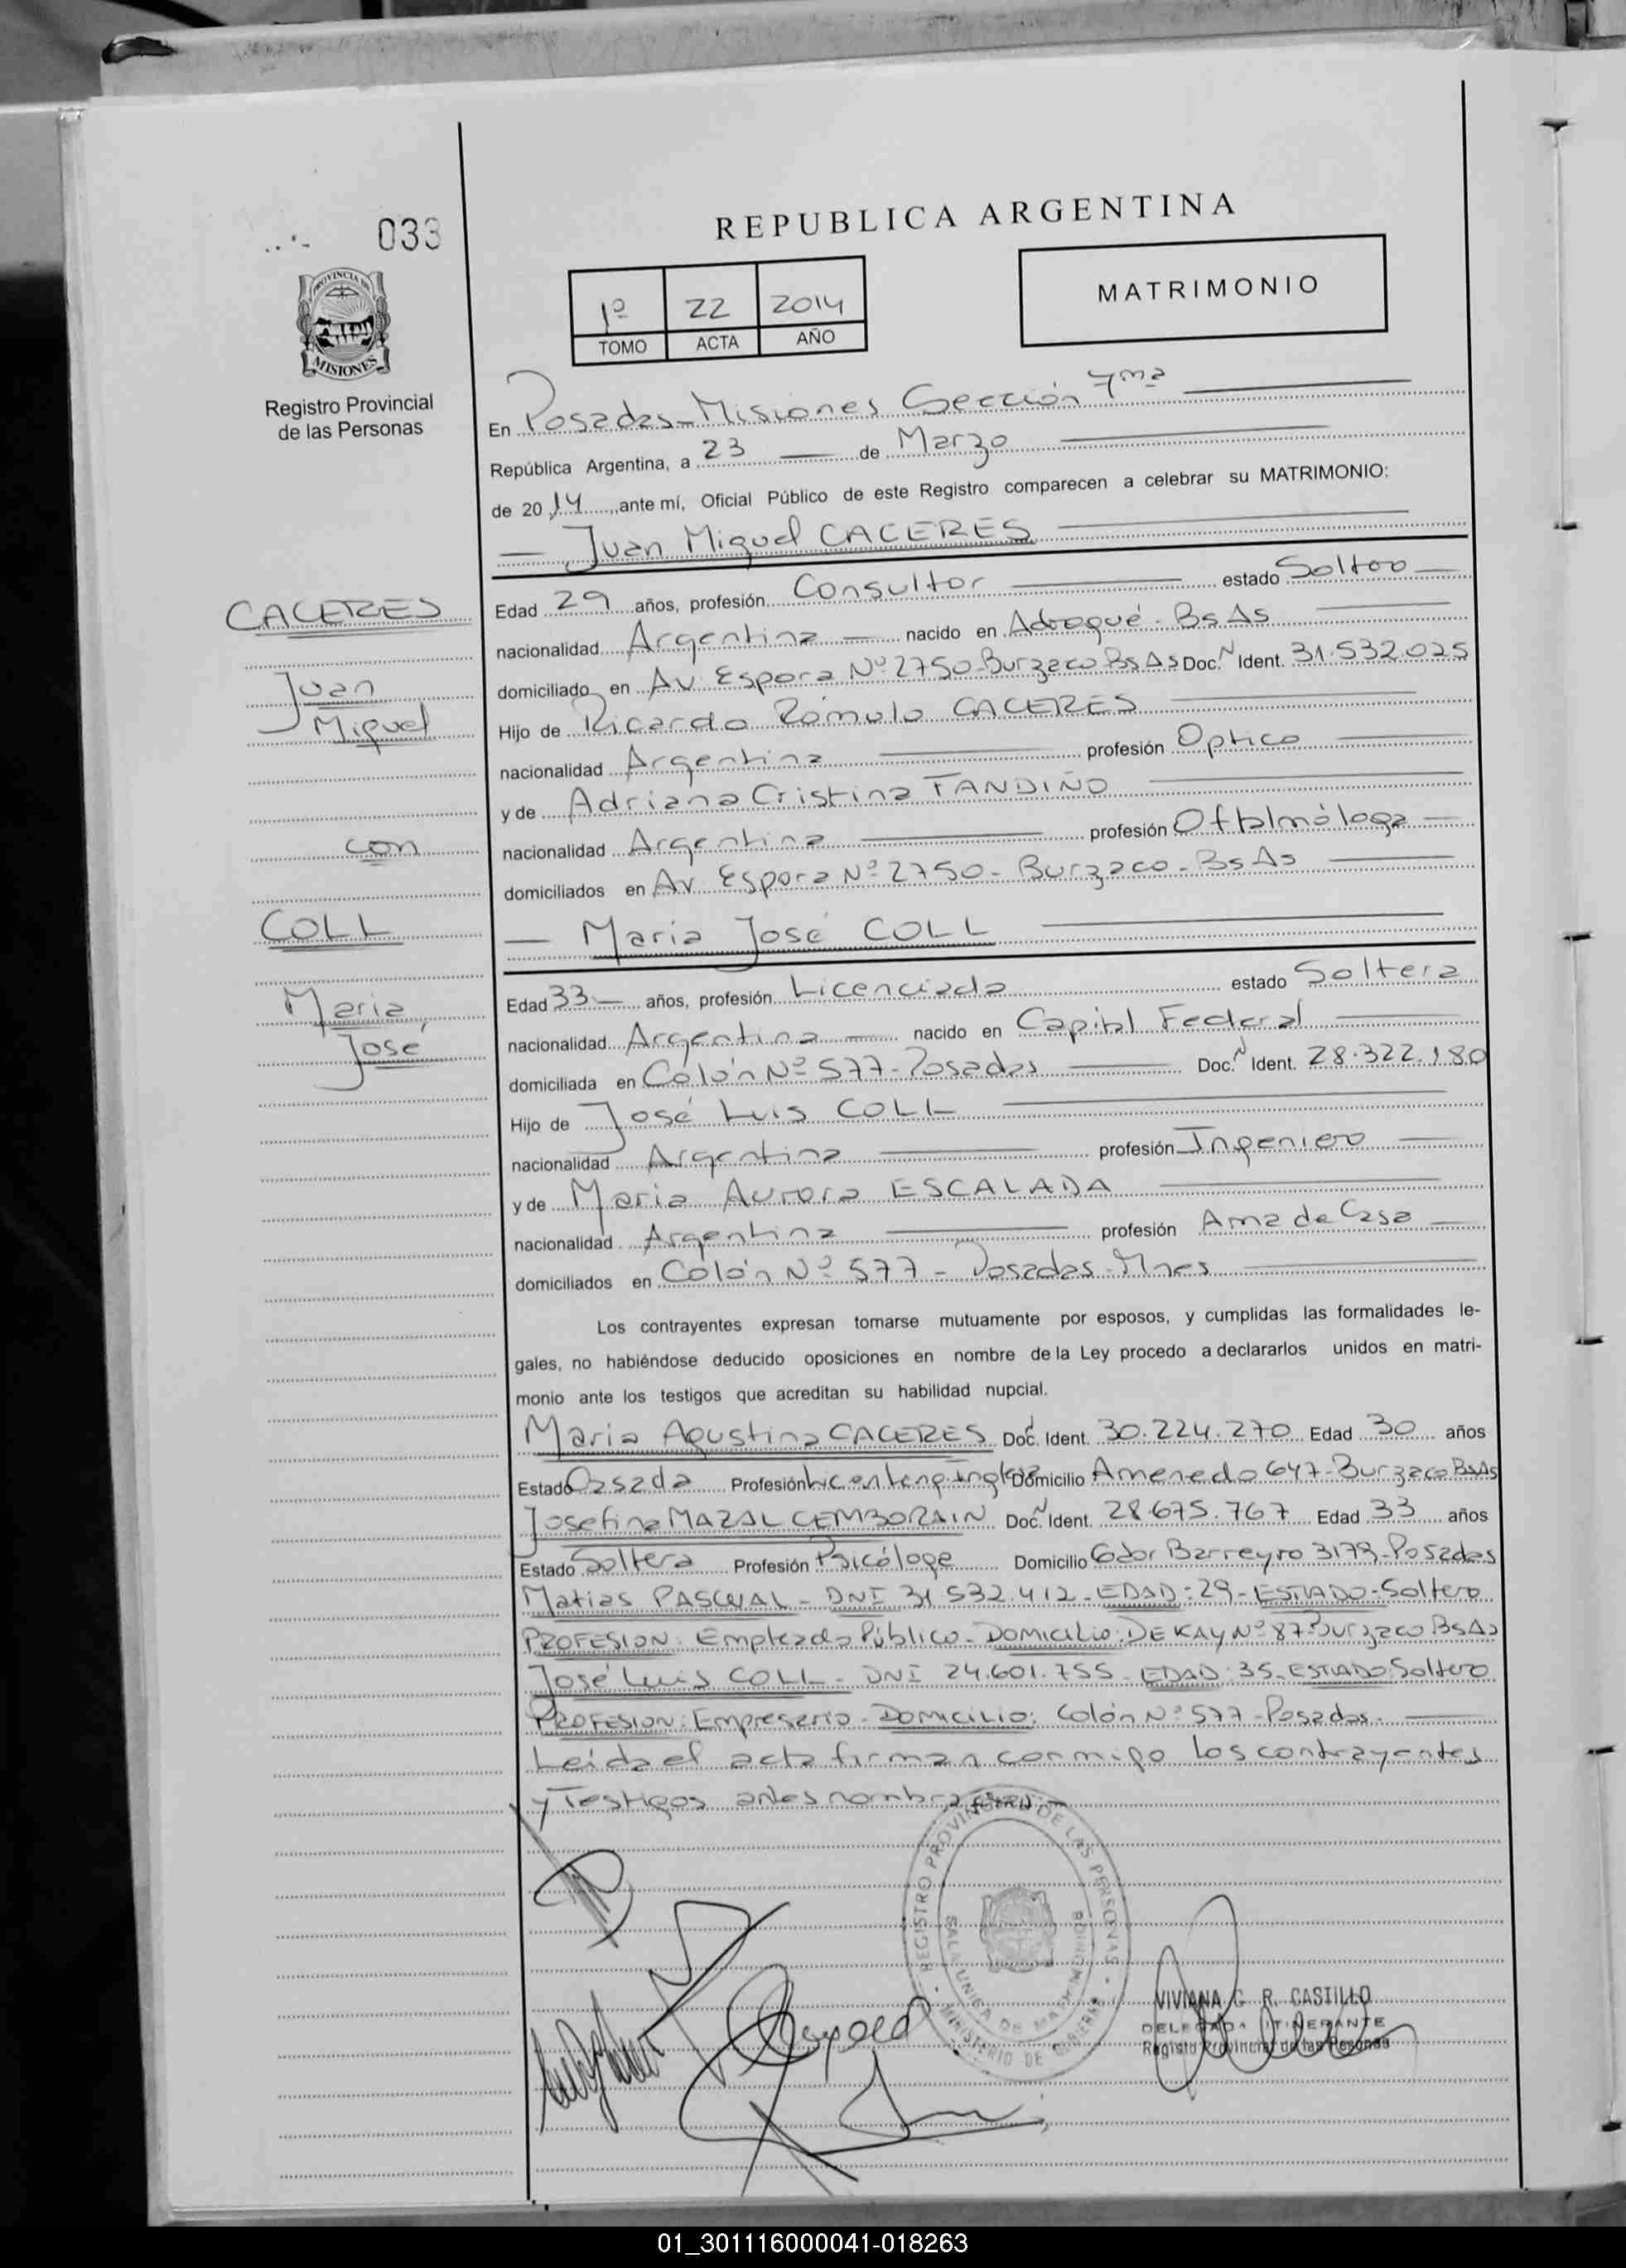 033
REPUBLICA ARGENTINA
PROVINCIA DE MISIONES
Registro Provincial
de las Personas
1º 22 2014
TOMO ACTA AÑO
MATRIMONIO
En Posadas-Misiones Sección 7ma
República Argentina, a 23 de Marzo
de 2014, ante mí, Oficial Público de este Registro comparecen a celebrar su MATRIMONIO:
Juan Miguel CACERES
CACERES
Juan
Miguel
con
COLL
Maria
José
Edad 29 años, profesión Consultor estado Soltero
nacionalidad Argentina nacido en Adrogué - BsAs
domiciliado en Av. Espora Nº 2750-Burzaco BsAs Doc.N Ident. 31.532.025
Hijo de Ricardo Rómulo CACERES
nacionalidad Argentina profesión Optico
y de Adriana Cristina FANDIÑO
nacionalidad Argentina profesión Oftalmóloga
domiciliados en Av. Espora Nº 2750- Burzaco - BsAs
Maria José COLL
Edad 33 años, profesión Licenciada estado Soltera
nacionalidad Argentina nacido en Capital Federal
domiciliada en Colón Nº 577-Posadas Doc.N Ident. 28.322.180
Hijo de José Luis COLL
nacionalidad Argentina profesión Ingeniero
y de Maria Aurora ESCALADA
nacionalidad Argentina profesión Ama de Casa
domiciliados en Colón Nº 577 - Posadas-Mnes
Los contrayentes expresan tomarse mutuamente por esposos, y cumplidas las formalidades le-
gales, no habiéndose deducido oposiciones en nombre de la Ley procedo a declararlos unidos en matri-
monio ante los testigos que acreditan su habilidad nupcial.
Maria Agustina CACERES Doc. Ident. 30.224.270 Edad 30 años
Estado Casada Profesión Domicilio Amenedo 647-Burzaco BsAs
Josefina MAZAL CEMBORAIN Doc.N Ident. 28.675.767 Edad 33 años
Estado Soltera Profesión Psicóloga Domicilio Gdor Barreyro 3179-Posadas
Matias PASCUAL - DNI 31.532.412 - EDAD: 29 - ESTADO- Soltero
PROFESION: Empleado Público - DOMICILIO: DE KAY Nº 87-Burzaco BsAs
José Luis COLL - DNI 24.601.755 - EDAD: 35 - ESTADO: Soltero
PROFESION: Empresario - DOMICILIO: Colón Nº 577 - Posadas.
Leída el acta firman conmigo los contrayentes
y Testigos antes nombrados.
REGISTRO PROVINCIAL DE LAS PERSONAS
MINISTERIO DE GOBIERNO
SALA UNICA DE MATRIMONIOS
VIVIANA G. R. CASTILLO
DELEGADA ITINERANTE
Registro Provincial de las Personas
01_301116000041-018263